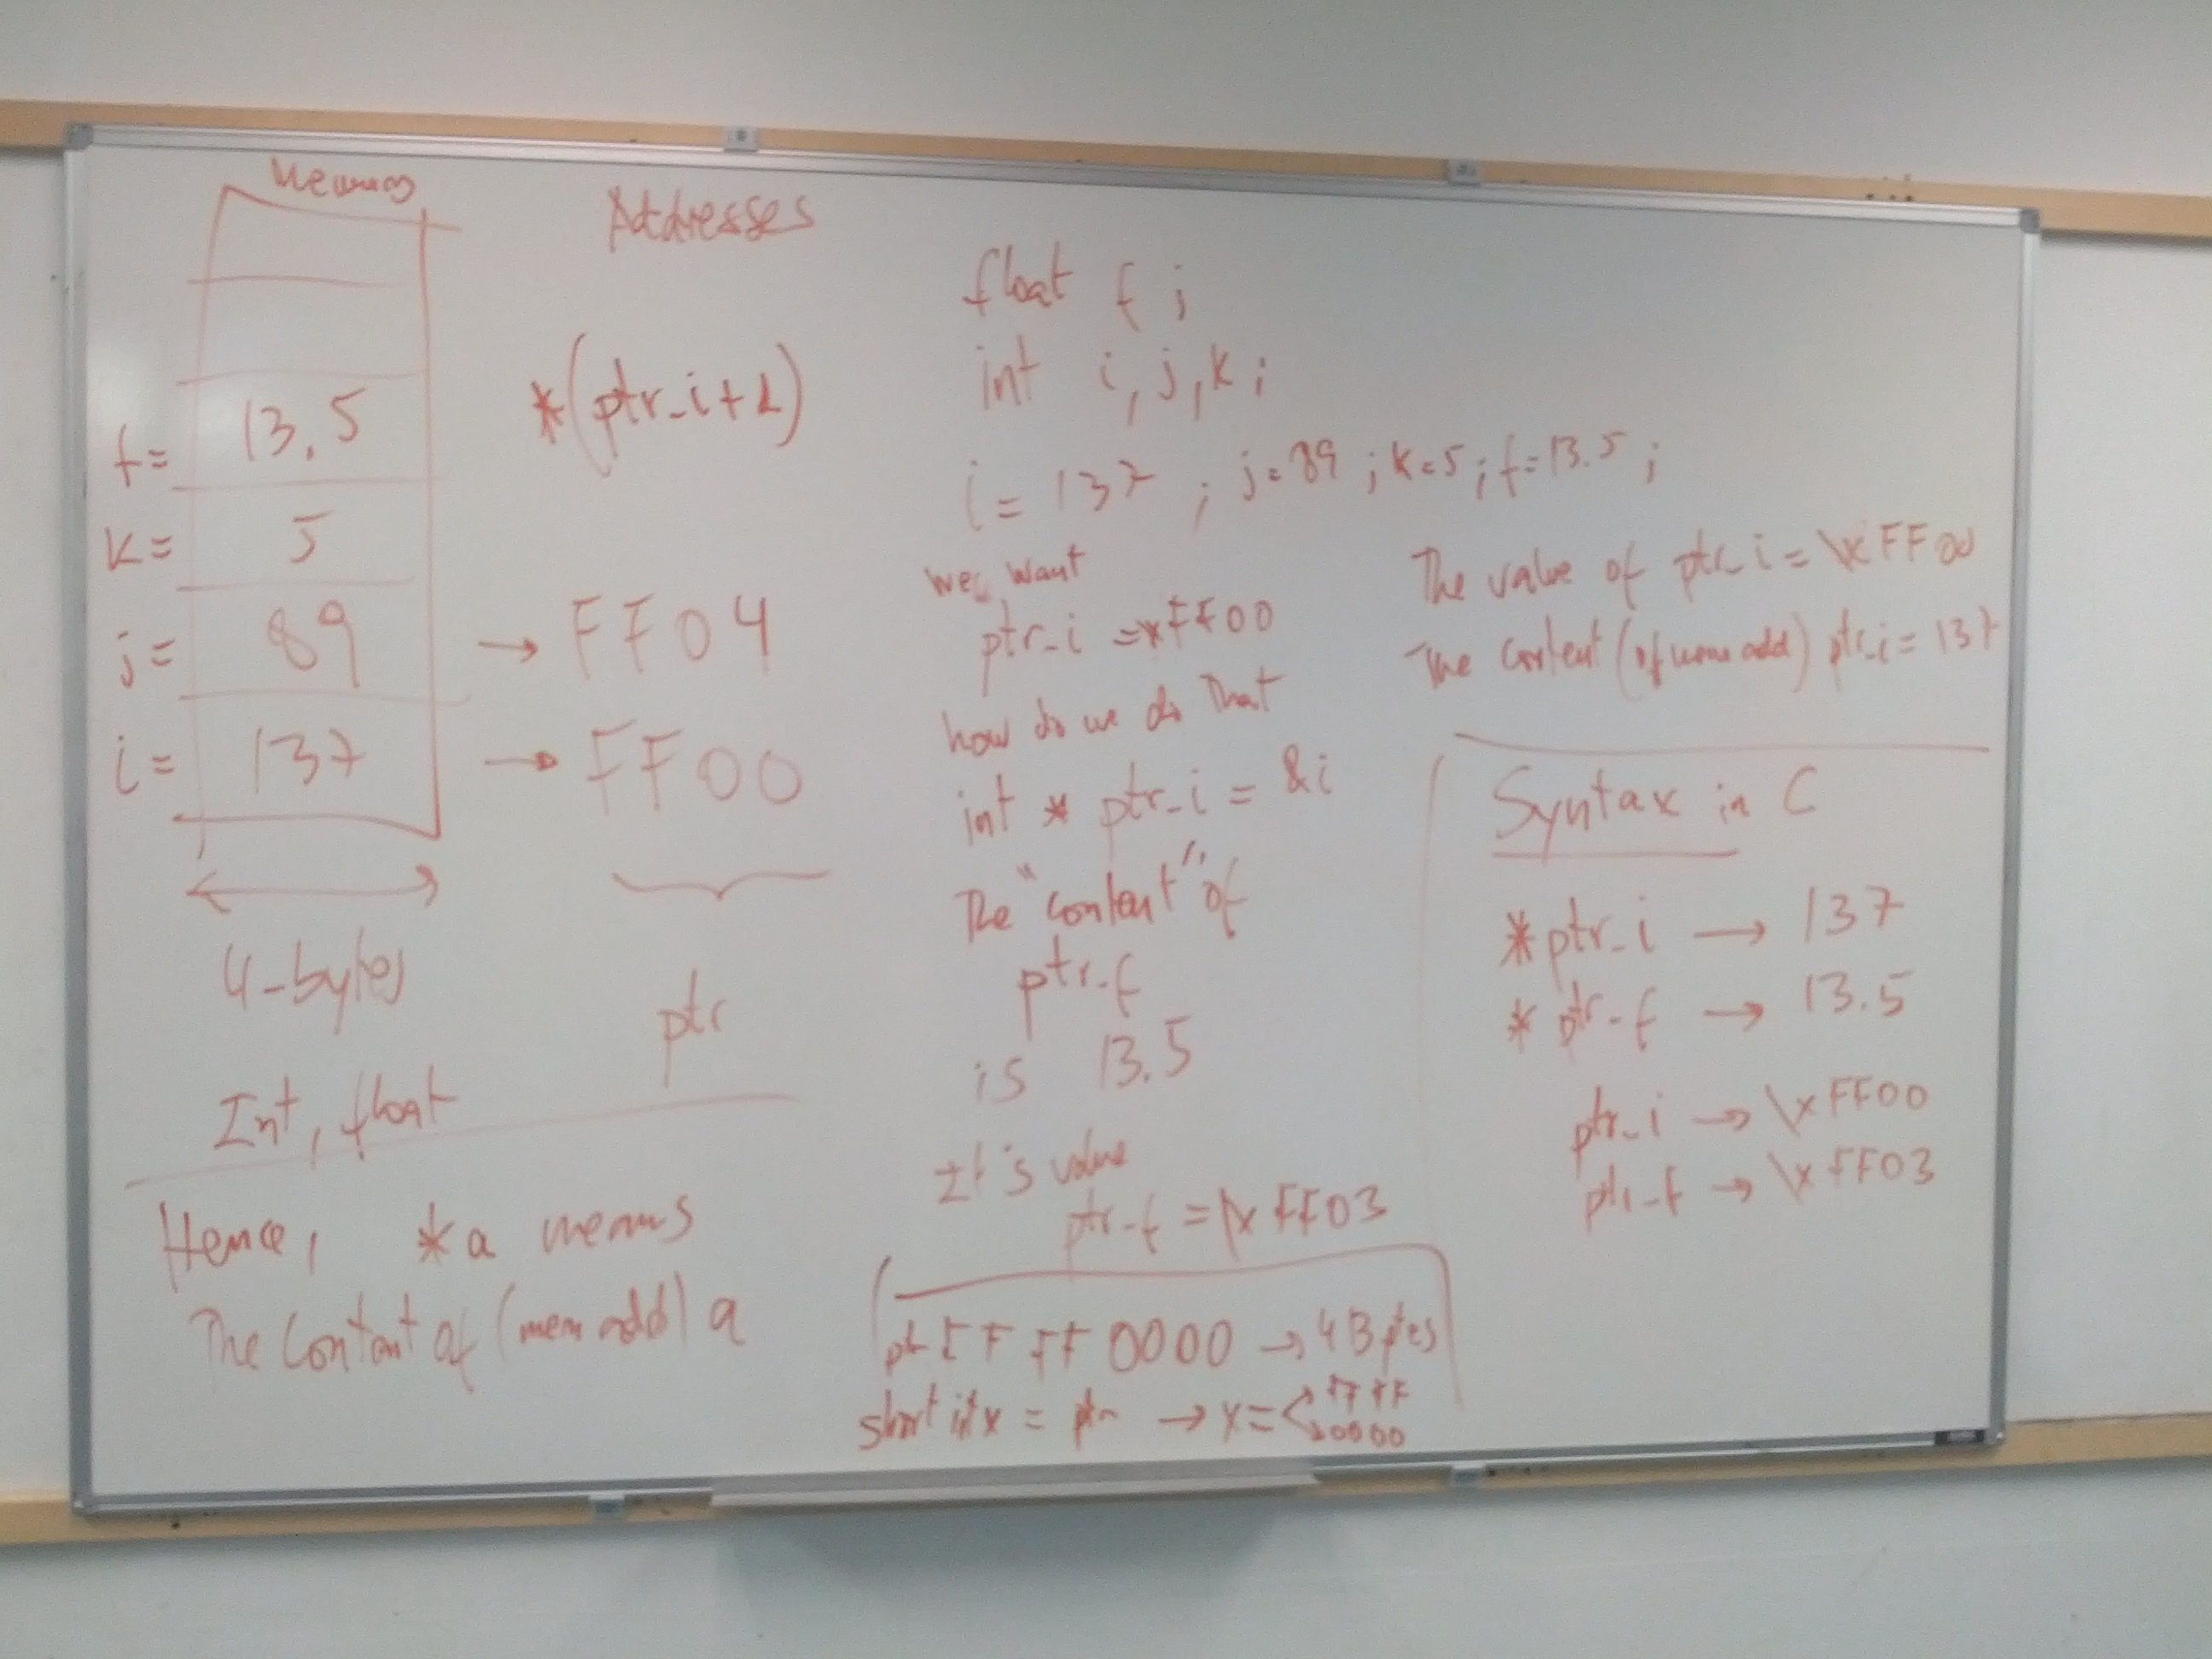 Memory
Addresses
*(ptr_i+1)
f= 13.5
k= 5
j= 89 → FF04
i= 137 → FF00
4-bytes
ptr
Int, float
Hence, *a means
The Content of (mem add) a
float f ;
int i, j, k ;
i = 137 ; j=89 ; k=5 ; f=13.5 ;
we want
ptr_i = xFF00
how do we do That
int * ptr_i = &i
The "content" of
ptr_f
is 13.5
It's value
ptr_f = \xFF03
FF FF 0000 → 4 Bytes
short int x = ptr → x = < FFFF
0000
The value of ptr_i = \xFF00
The content (of mem add) ptr_i = 137
Syntax in C
*ptr_i → 137
* ptr_f → 13.5
ptr_i → \xFF00
ptr_f → \xFF03